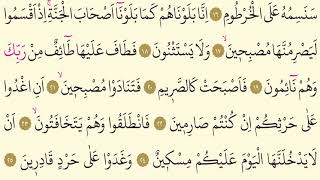 سَنَسِمُهُ عَلَى الْخُرْطُومِ ﴿١٦﴾ اِنَّا بَلَوْنَاهُمْ كَمَا بَلَوْنَٓا اَصْحَابَ الْجَنَّةِۚ اِذْ اَقْسَمُوا
لَيَصْرِمُنَّهَا مُصْبِح۪ينَۙ ﴿١٧﴾ وَلَا يَسْتَثْنُونَ ﴿١٨﴾ فَطَافَ عَلَيْهَا طَٓائِفٌ مِنْ رَبِّكَ
وَهُمْ نَٓائِمُونَ ﴿١٩﴾ فَاَصْبَحَتْ كَالصَّر۪يمِۙ ﴿٢٠﴾ فَتَنَادَوْا مُصْبِح۪ينَۙ ﴿٢١﴾ اَنِ اغْدُوا
عَلٰى حَرْثِكُمْ اِنْ كُنْتُمْ صَارِم۪ينَ ﴿٢٢﴾ فَانْطَلَقُوا وَهُمْ يَتَخَافَتُونَۙ ﴿٢٣﴾ اَنْ
لَا يَدْخُلَنَّهَا الْيَوْمَ عَلَيْكُمْ مِسْك۪ينٌۙ ﴿٢٤﴾ وَغَدَوْا عَلٰى حَرْدٍ قَادِر۪ينَ ﴿٢٥﴾